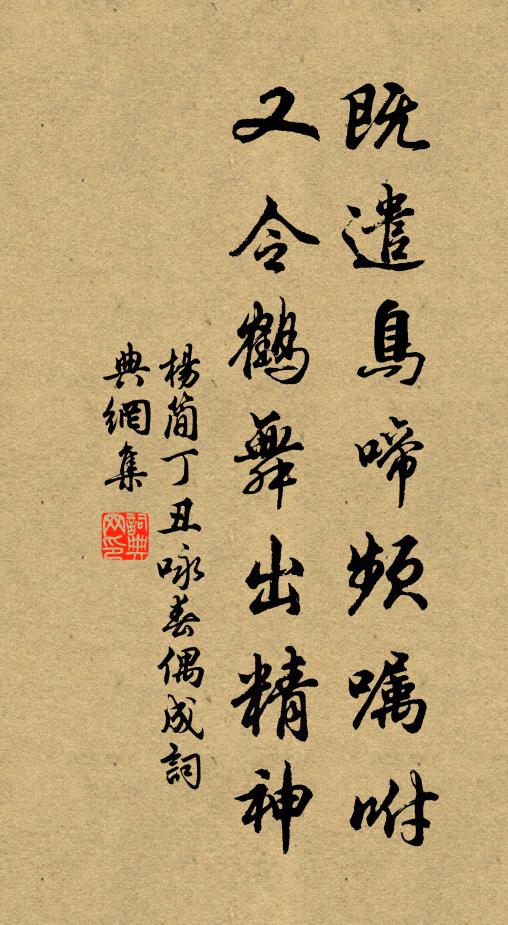 既遣鳥啼頻嘱咐
又令鶴舞出精神
楊簡丁丑咏春偶成詞
典網集
詞典网印